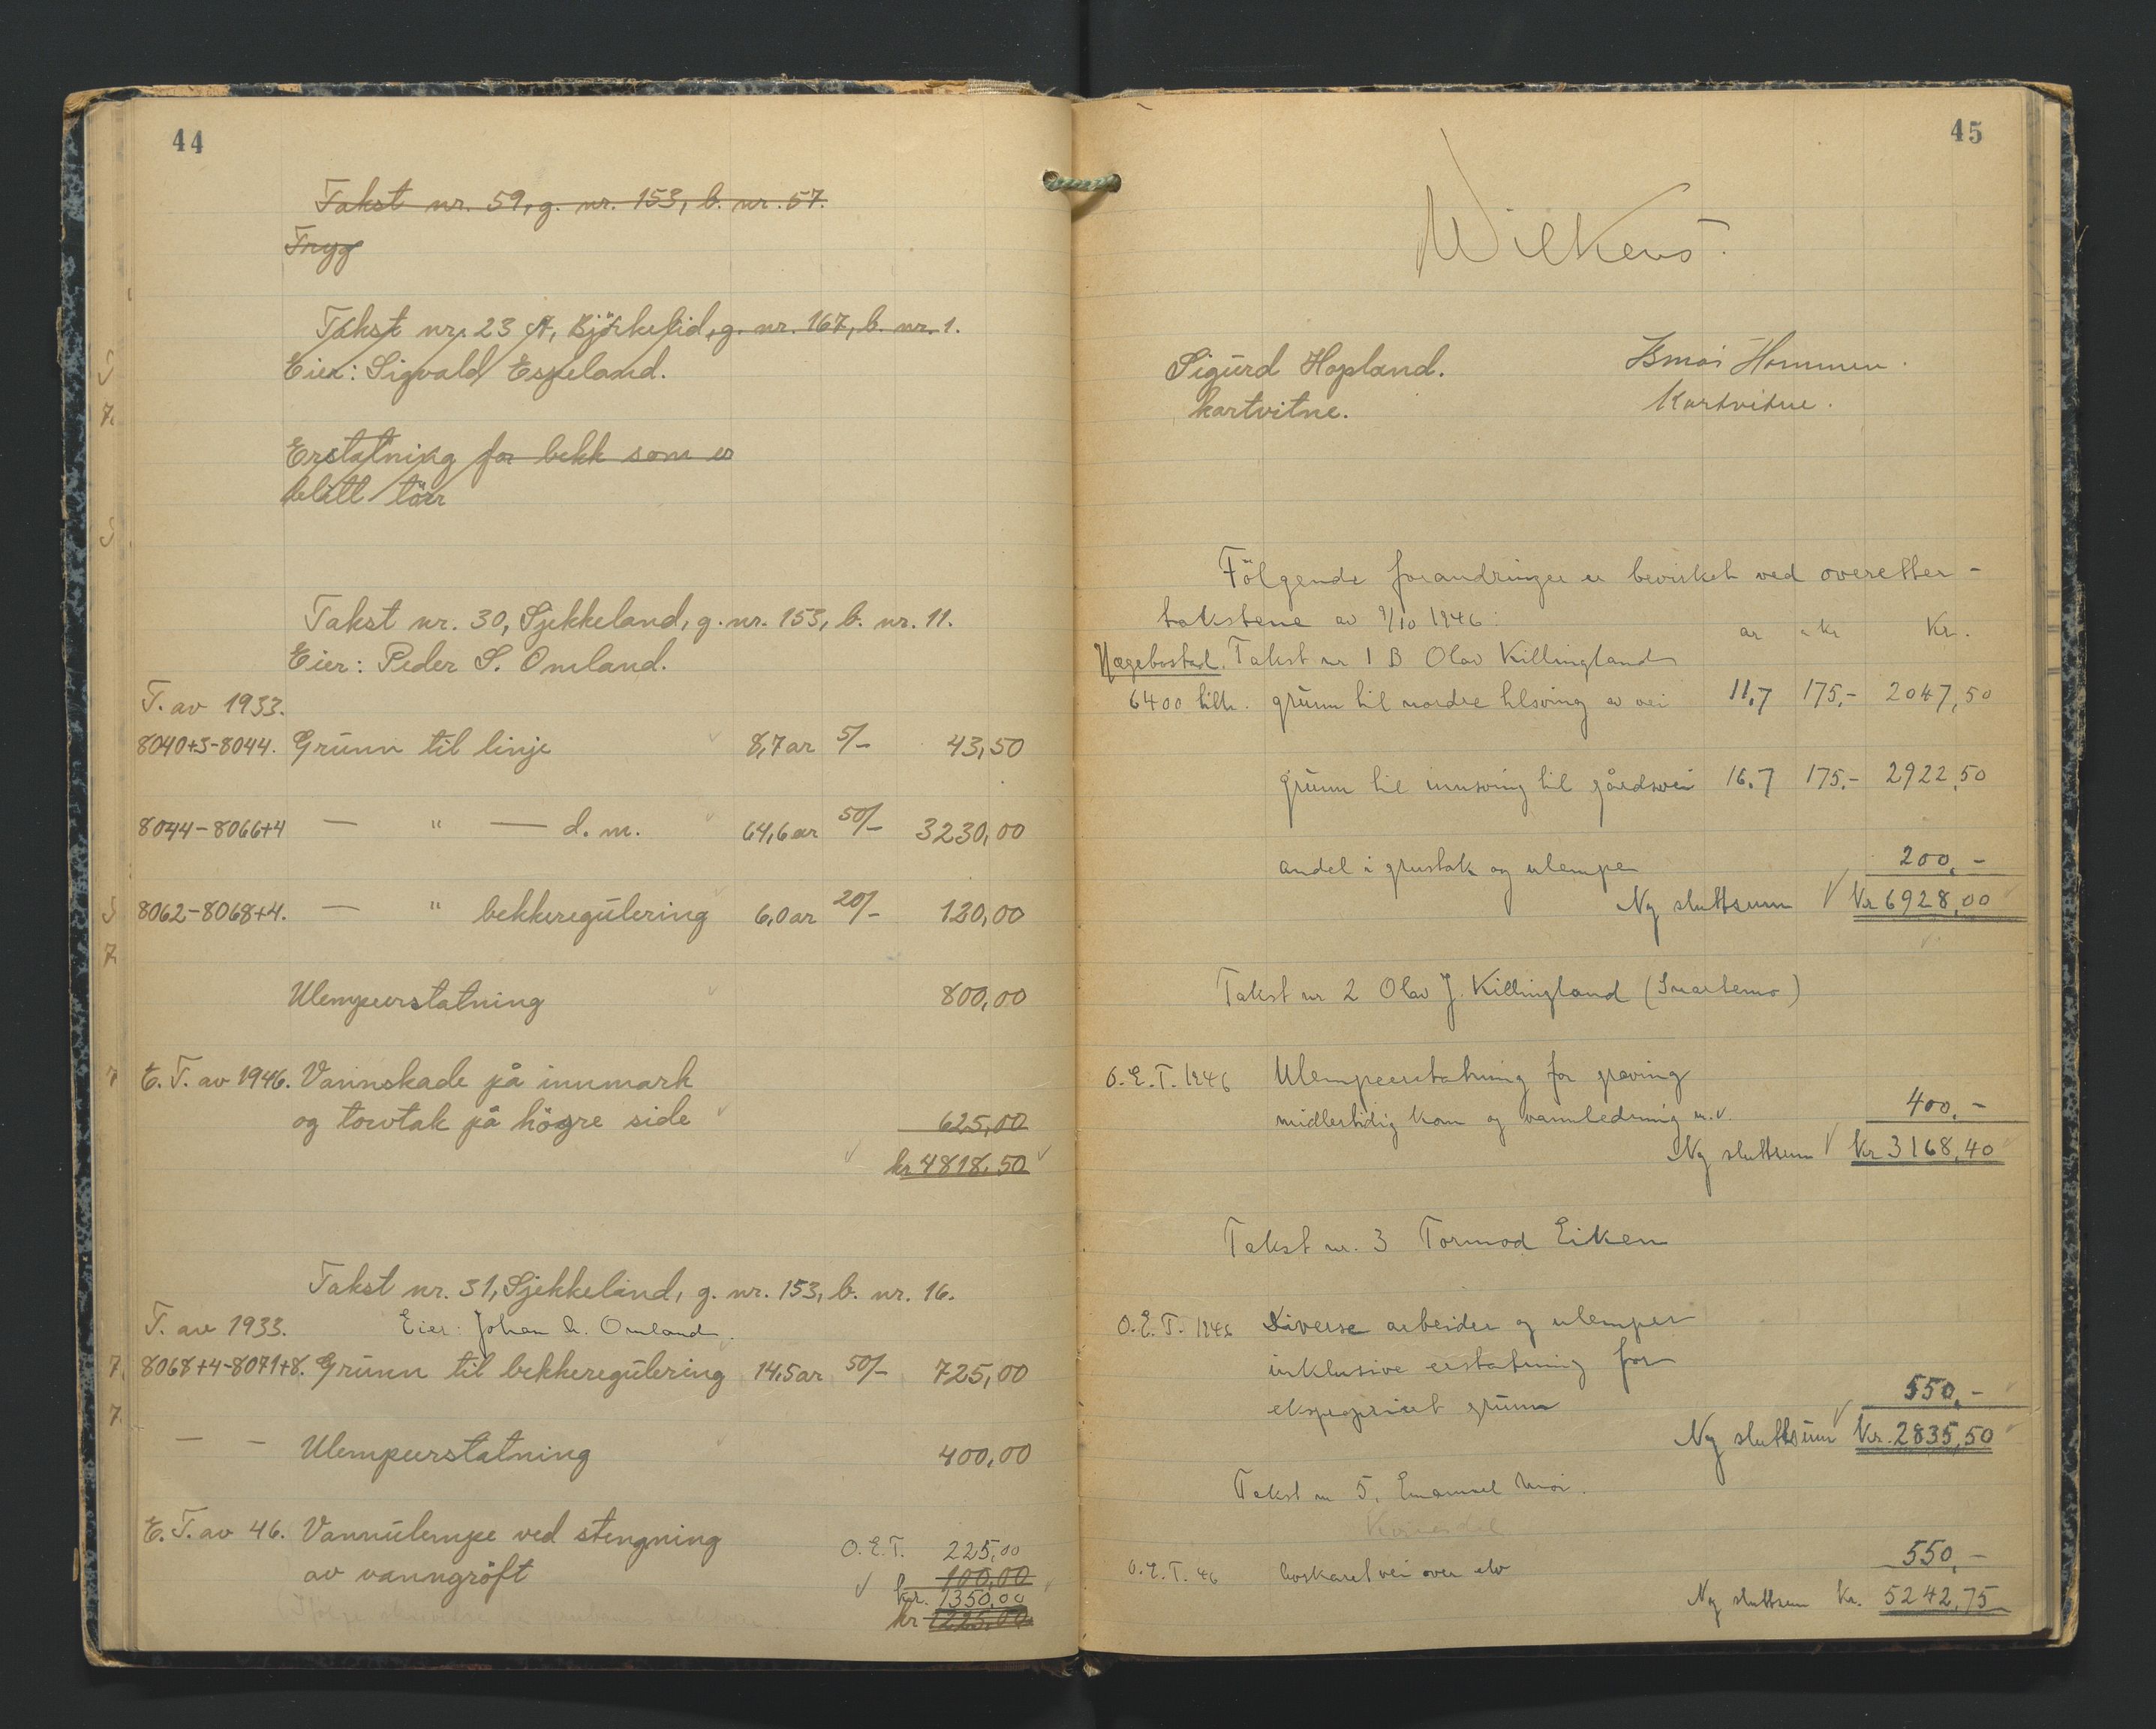 44
Takst nr. 59, g. nr. 153, b. nr. 57.
Tryg
Takst nr. 23 A, Björkelid, g. nr. 167, b. nr. 1.
Eier: Sigvald Espeland.
Erstatning for bekk som er
blitt törr
Takst nr. 30, Sjekkeland, g. nr. 153, b. nr. 11.
Eier: Peder S. Omland.
T. av 1933.
8040+3-8044. Grunn til linje 8,7 ar 5/- 43,50
8044-8066+4 — " — d. m. 64,6 ar 50/- 3230,00
8062-8068+4. — " bekkeregulering 6,0 ar 20/- 120,00
Ulempeerstatning 800,00
E. T. av 1946. Vannskade på innmark
og torvtak på högre side 625,00
kr 4818,50
Takst nr. 31, Sjekkeland, g. nr. 153, b. nr. 16.
T. av 1933. Eier: Johan A. Omland.
8068+4-8071+8. Grunn til bekkeregulering 14,5 ar 50/- 725,00
— — Ulempeerstatning 400,00
E. T. av 46. Vannulempe ved stengning
O.E.T. 225,00
av vanngröft 100,00
kr. 1350,00
kr 1225,00
45
Wilkens.
Sigurd Hopland. Hommen.
kartvitne. Kartvitne.
Fölgende forandringer er bevirket ved overetter-
takstene av 9/10 1946:
ar a kr Kr.
Hægebostad. Takst nr 1 B Olav Killingland
6400 grunn til nordre tilsving av vei 11,7 175,- 2047,50
grunn til innsving til gårdsvei 16,7 175,- 2922,50
andel i grustak og ulempe 200,-
Ny sluttsum Kr 6928,00
Takst nr 2 Olav J. Killingland (Snartemo)
O.E.T. 1946 Ulempeerstatning for graving
midlertidig kom og vannledning m.v. 400,-
Ny sluttsum Kr 3168,40
Takst nr. 3 Tormod Eiken
O.E.T. 1946 Diverse arbeider og ulemper
inklusive erstatning for
ekspropriert grunn 550,-
Ny sluttsum Kr. 2835,50
Takst nr 5, Emanuel Moi.
Kvinesdal
O.E.T. 46 vei over elv 550,-
Ny sluttsum Kr. 5242,75